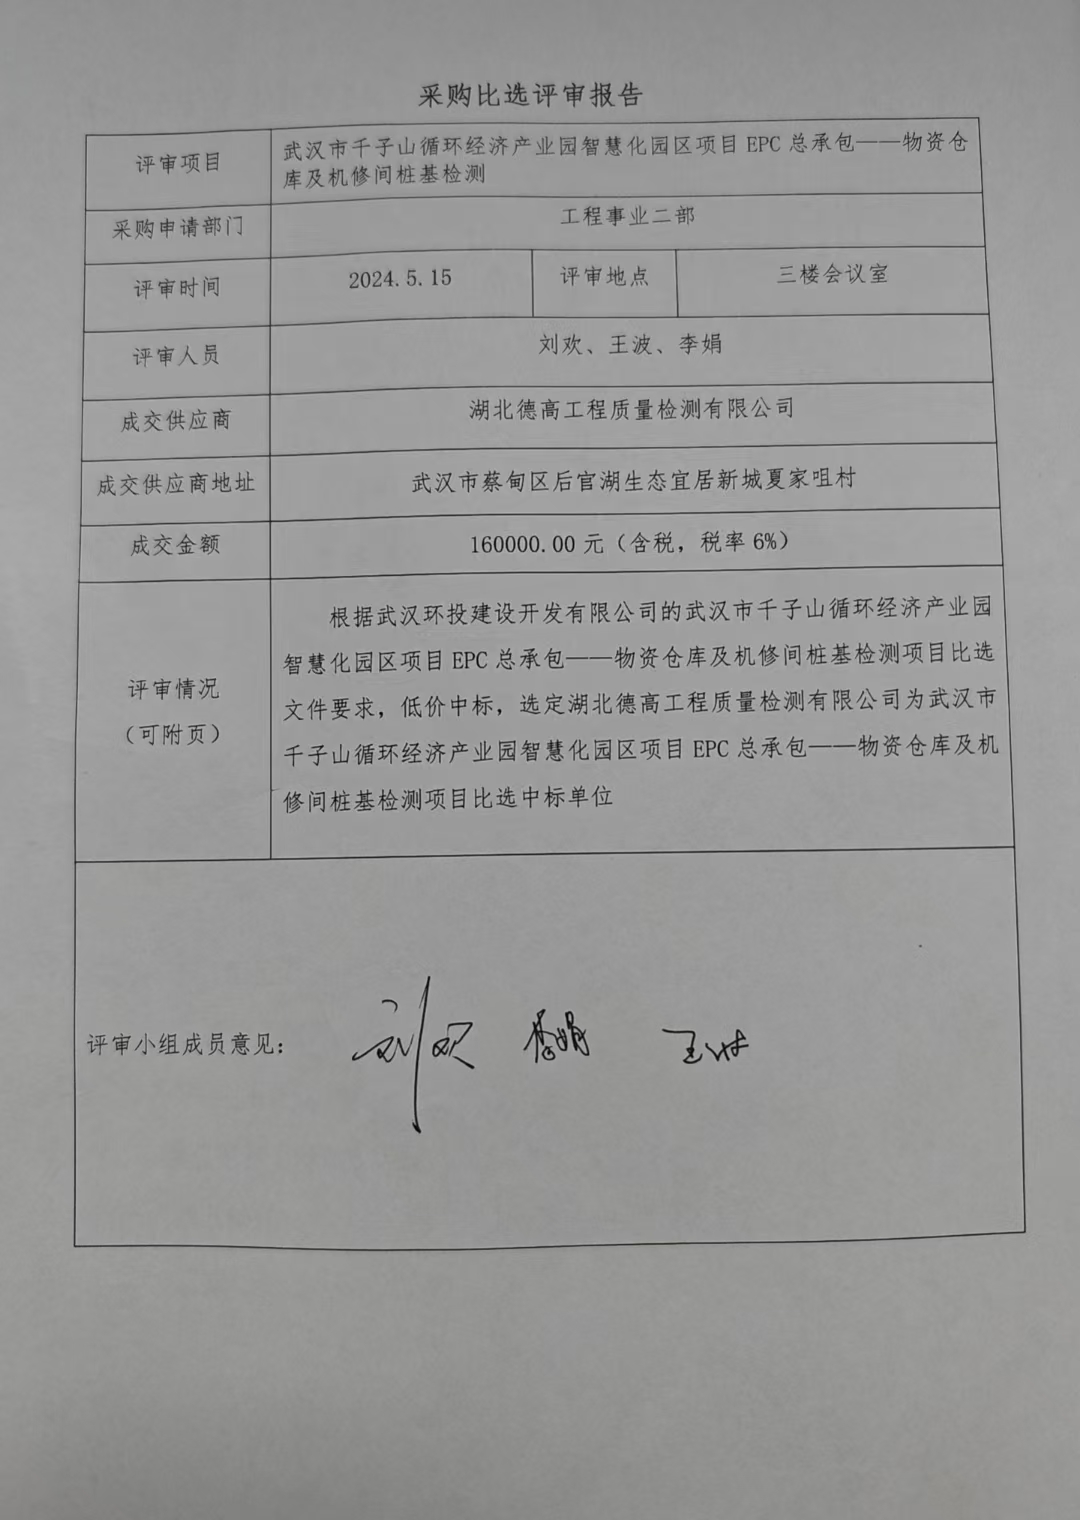 采购比选评审报告
评审项目
武汉市千子山循环经济产业园智慧化园区项目 EPC 总承包——物资仓
库及机修间桩基检测
采购申请部门
工程事业二部
评审时间
2024.5.15
评审地点
三楼会议室
评审人员
刘欢、王波、李娟
成交供应商
湖北德高工程质量检测有限公司
成交供应商地址
武汉市蔡甸区后官湖生态宜居新城夏家咀村
成交金额
160000.00 元（含税，税率 6%）
评审情况
（可附页）
根据武汉环投建设开发有限公司的武汉市千子山循环经济产业园
智慧化园区项目 EPC 总承包——物资仓库及机修间桩基检测项目比选
文件要求，低价中标，选定湖北德高工程质量检测有限公司为武汉市
千子山循环经济产业园智慧化园区项目 EPC 总承包——物资仓库及机
修间桩基检测项目比选中标单位
评审小组成员意见：
刘欢 李娟 王波